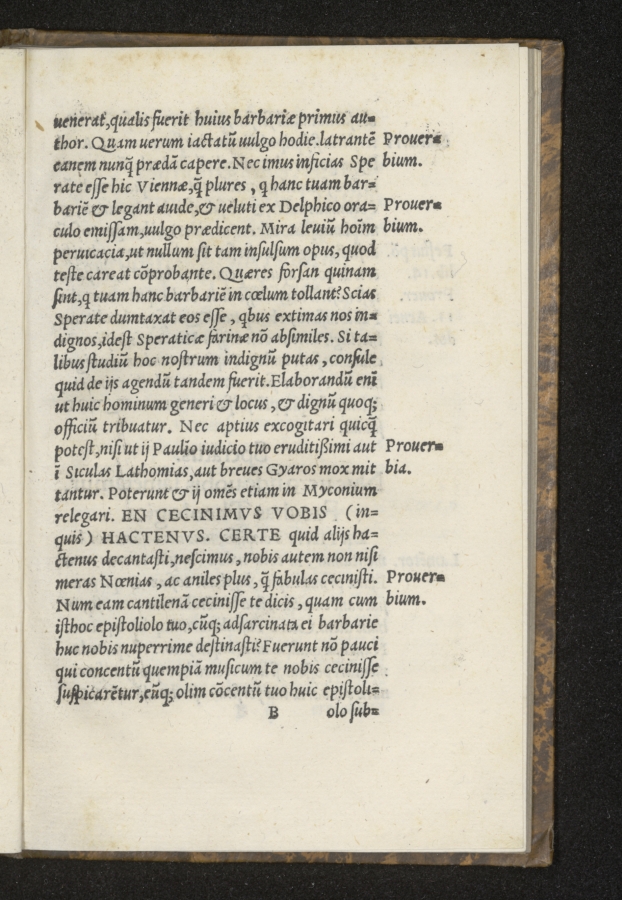 uenerat, qualis fuerit huius barbariæ primus au=
thor. Quam uerum iactatũ uulgo hodie. latrantẽ Prouer=
canem nunq̃ prædã capere. Nec imus inficias Spe bium.
rate esse hic Viennæ, q̃ plures, q hanc tuam bar=
bariẽ & legant auide, & ueluti ex Delphico ora= Prouer=
culo emissam, uulgo prædicent. Mira leuiũ hoĩm bium.
peruicacia, ut nullum sit tam insulsum opus, quod
teste careat cõprobante. Quæres forsan quinam
sint, q tuam hanc barbariẽ in cœlum tollant? Scias
Sperate dumtaxat eos esse, qbus extimas nos in=
dignos, idest Speraticæ farinæ nõ absimiles. Si ta=
libus studiũ hoc nostrum indignũ putas, consule
quid de ijs agendũ tandem fuerit. Elaborandũ enĩ
ut huic hominum generi & locus, & dignũ quoq;
officiũ tribuatur. Nec aptius excogitari quicq̃
potest, nisi ut ij Paulĩo iudicio tuo eruditißimi aut Prouer=
ĩ Siculas Lathomias, aut breues Gyaros mox mit bia.
tantur. Poterunt & ij omẽs etiam in Myconium
relegari. EN CECINIMVS VOBIS (in=
quis) HACTENVS. CERTE quid alijs ha=
ctenus decantasti, nescimus, nobis autem non nisi
meras Nœnias, ac aniles plus, q̃ fabulas cecinisti. Prouer=
Num eam cantilenã cecinisse te dicis, quam cum bium.
isthoc epistoliolo tuo, cũq; adsarcinata ei barbarie
huc nobis nuperrime destinasti? Fuerunt nõ pauci
qui concentũ quempiã musicum te nobis cecinisse
suspicarẽtur, eũq; olim cõcentũ tuo huic epistoli=
B olo sub=